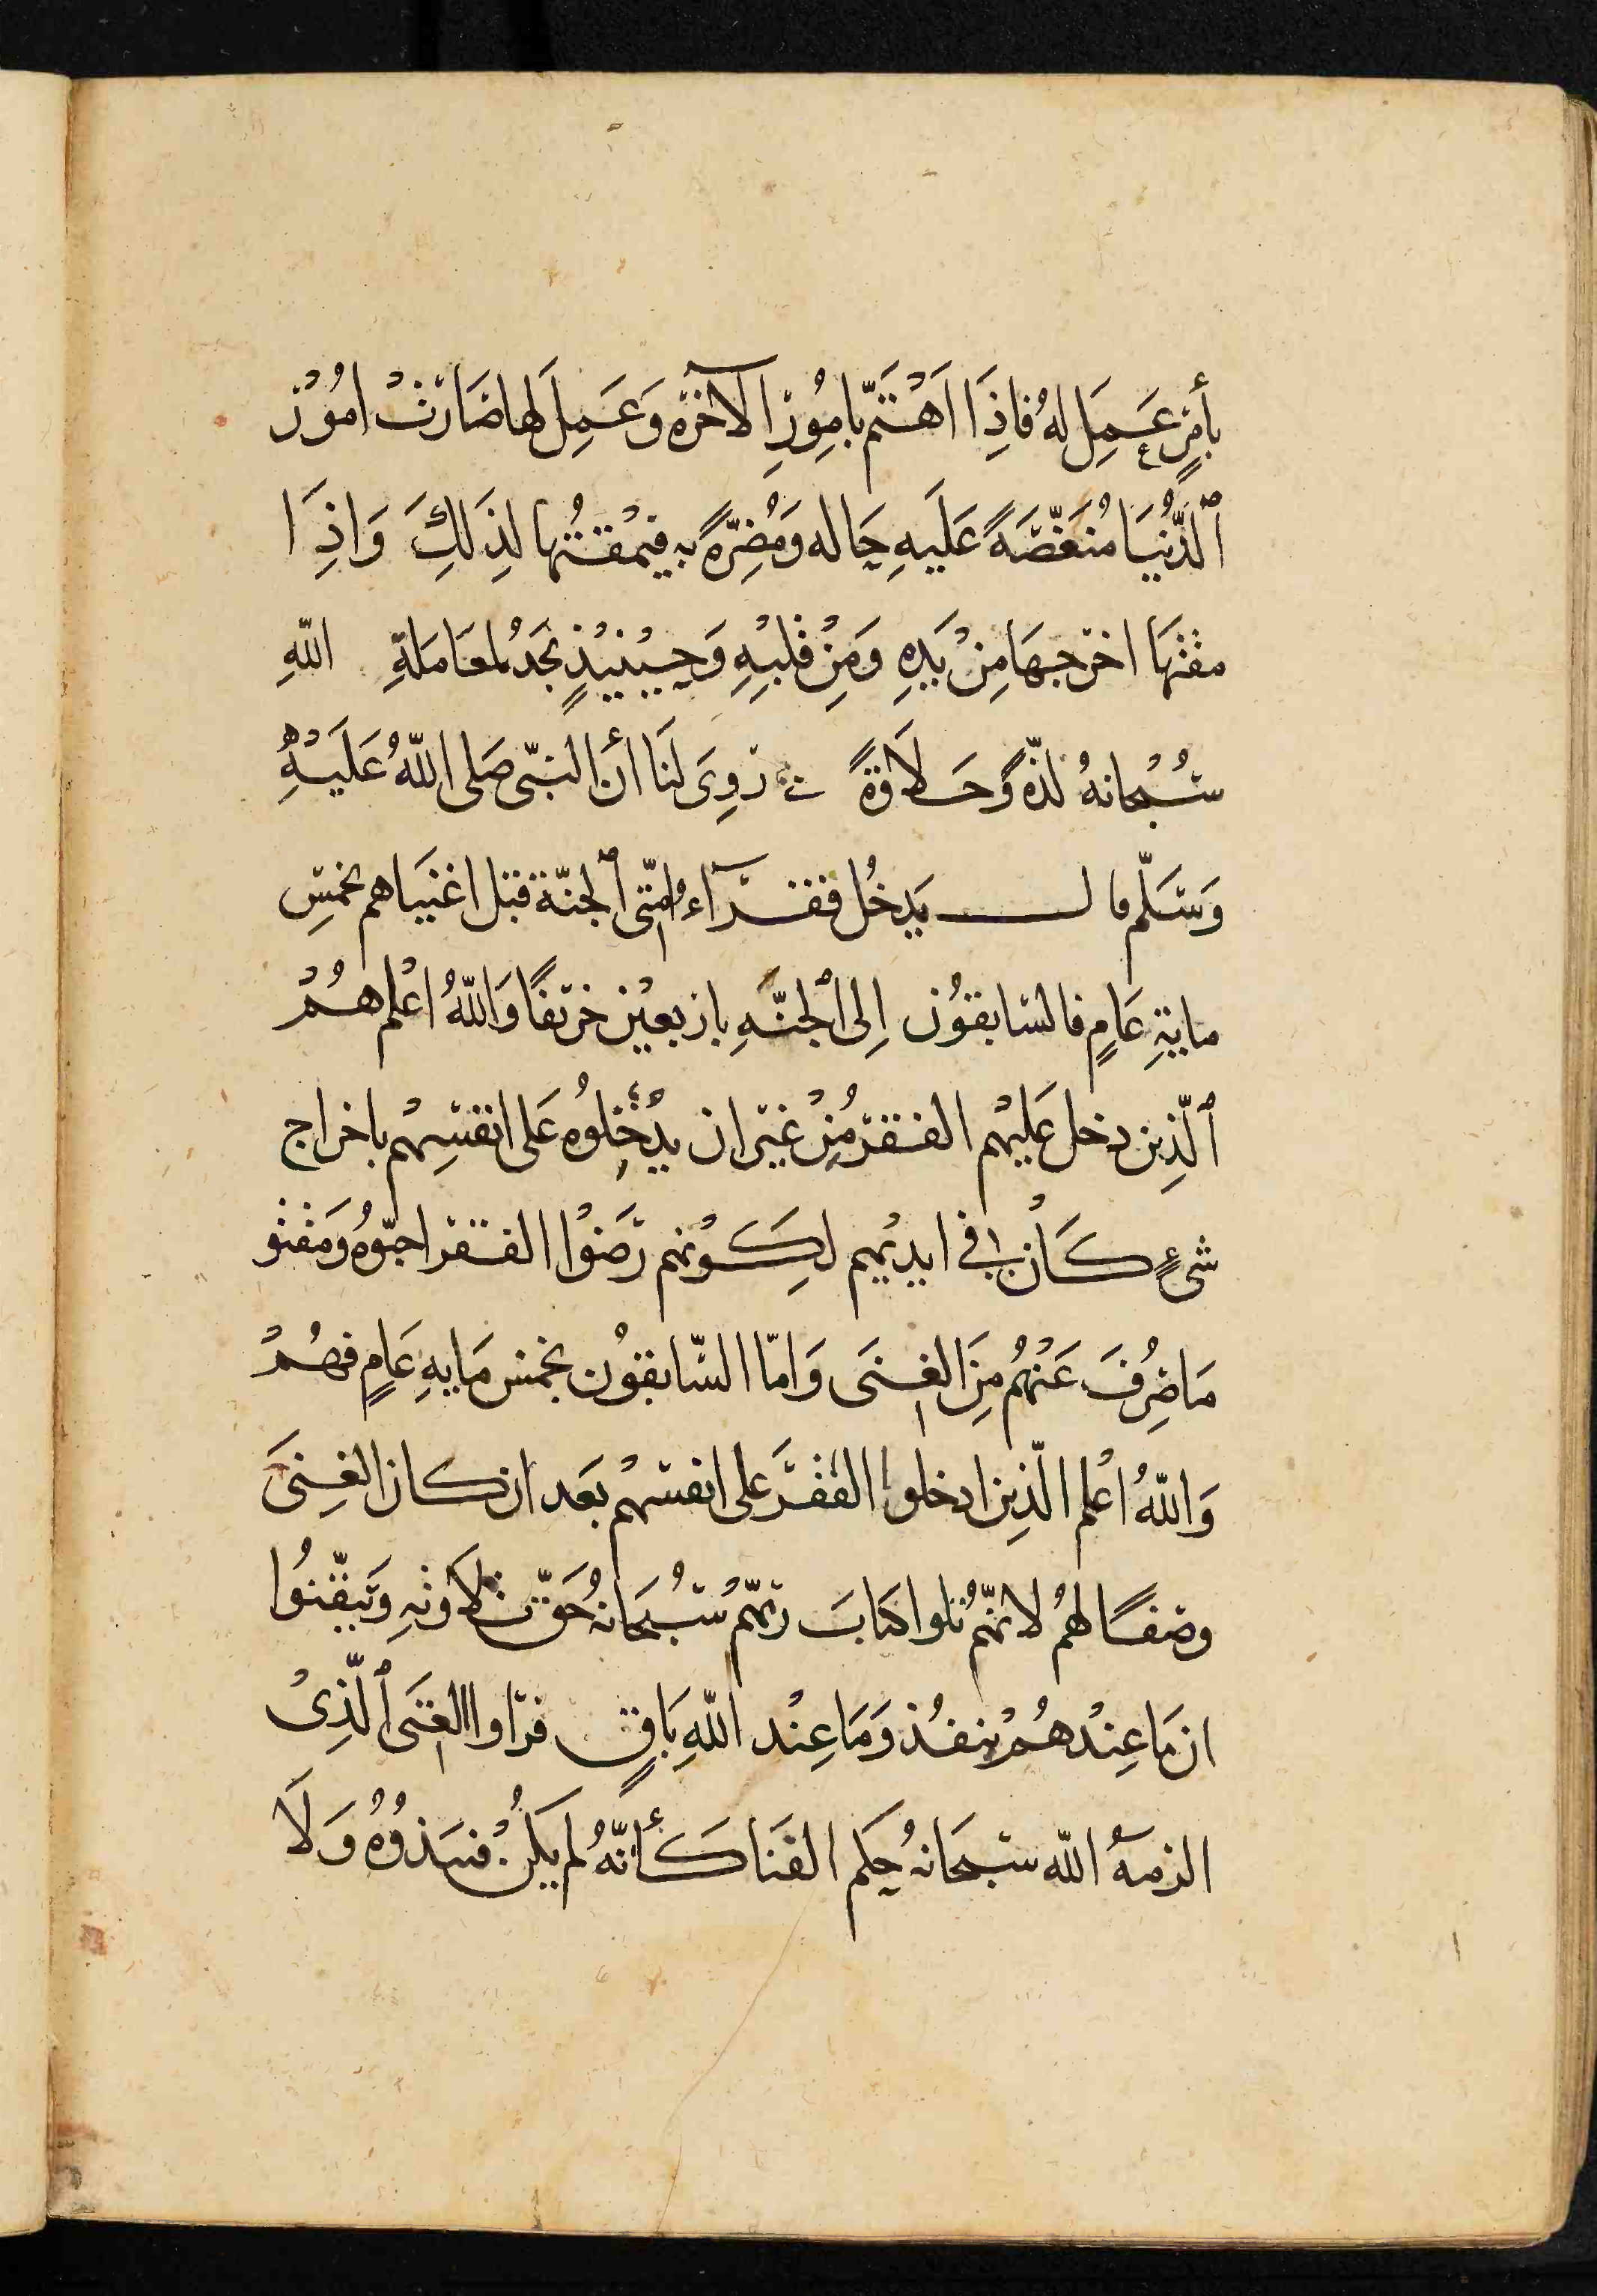 بأمرٍ عَمِلَ لهُ فاذَا اَهْتَمّ بامُورِ الآخرة وَعَمِلَ لَها صَارَتْ امُوْر
ٱلدُّنْيَا مُنَغّصَةً عَلَيهِ حَاله وَمُضِرّةً به فيمْقتُها لذَلِكَ وَاذِ ا
مقتهَا اخرجهَا مِنْ يَدِهِ وَمِنْ قلْبِهِ وَحِيْنئِذٍ يَجدُ لمعَامَلةِ اللّهِ
سُبْحانهُ لذّةً وَحَلاَوةً رُوِىَ لَنَا أن النبّى صَلى اللّهُ عَلَيْهِ
وَسَلّم قال يَدخُل فقرآءُ امّتى ٱلجنّة قبل اغنيَاهم بخمسِ
مايةِ عَامٍ فالسّابقوُن اِلى ٱلجنّهِ باربعيْن خريفًا وَاللّهُ اعْلم هُمْ
ٱلّذِين دخل عَليْهم الفقرُ مِنْ غير ان يدْخلوُه عَلى انفسِهمْ باخراج
شىءٍ كَانَ فى ايديْهم لِكَوْنهم رَضوْا الفقر احبّوُه وَمَقتو
مَا صُرِفَ عَنْهُم مِنَ الغِنَى وَامّا السّابقوُن بخمس مَايهِ عَامٍ فهُمْ
وَاللّهُ اعْلم الّذِين ادخلوا الفقْرَ على انفسهمْ بَعد ان كان الغِنىَ
وصْفًا لهُم لانّهُم تلوا كتابَ ربّهمْ سُبْحَانهُ حَقّ تلاَوتِهِ وَتيقّنوُا
ان مَا عِنْدهُمْ ينفدُ وَمَا عِنْد اللّهِ بَاقٍ فرَاوا الغنَى ٱلّذِىْ
الزمهُ اللّه سبْحَانهُ حكم الفنَا كَأنّهُ لم يَكُنْ فنبَذوُهُ وَلَا